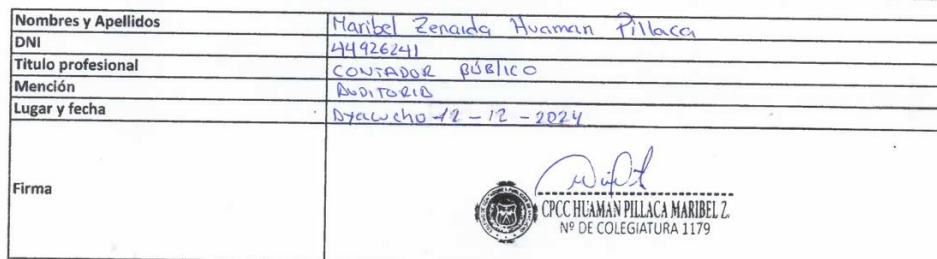 Nombres y Apellidos Maribel Zenaida Huaman Pillaca
DNI 44926241
Titulo profesional CONTADOR PÚBLICO
Mención AUDITORIA
Lugar y fecha Ayacucho 12 - 12 - 2024
Firma
CPCC HUAMAN PILLACA MARIBEL Z.
Nº DE COLEGIATURA 1179